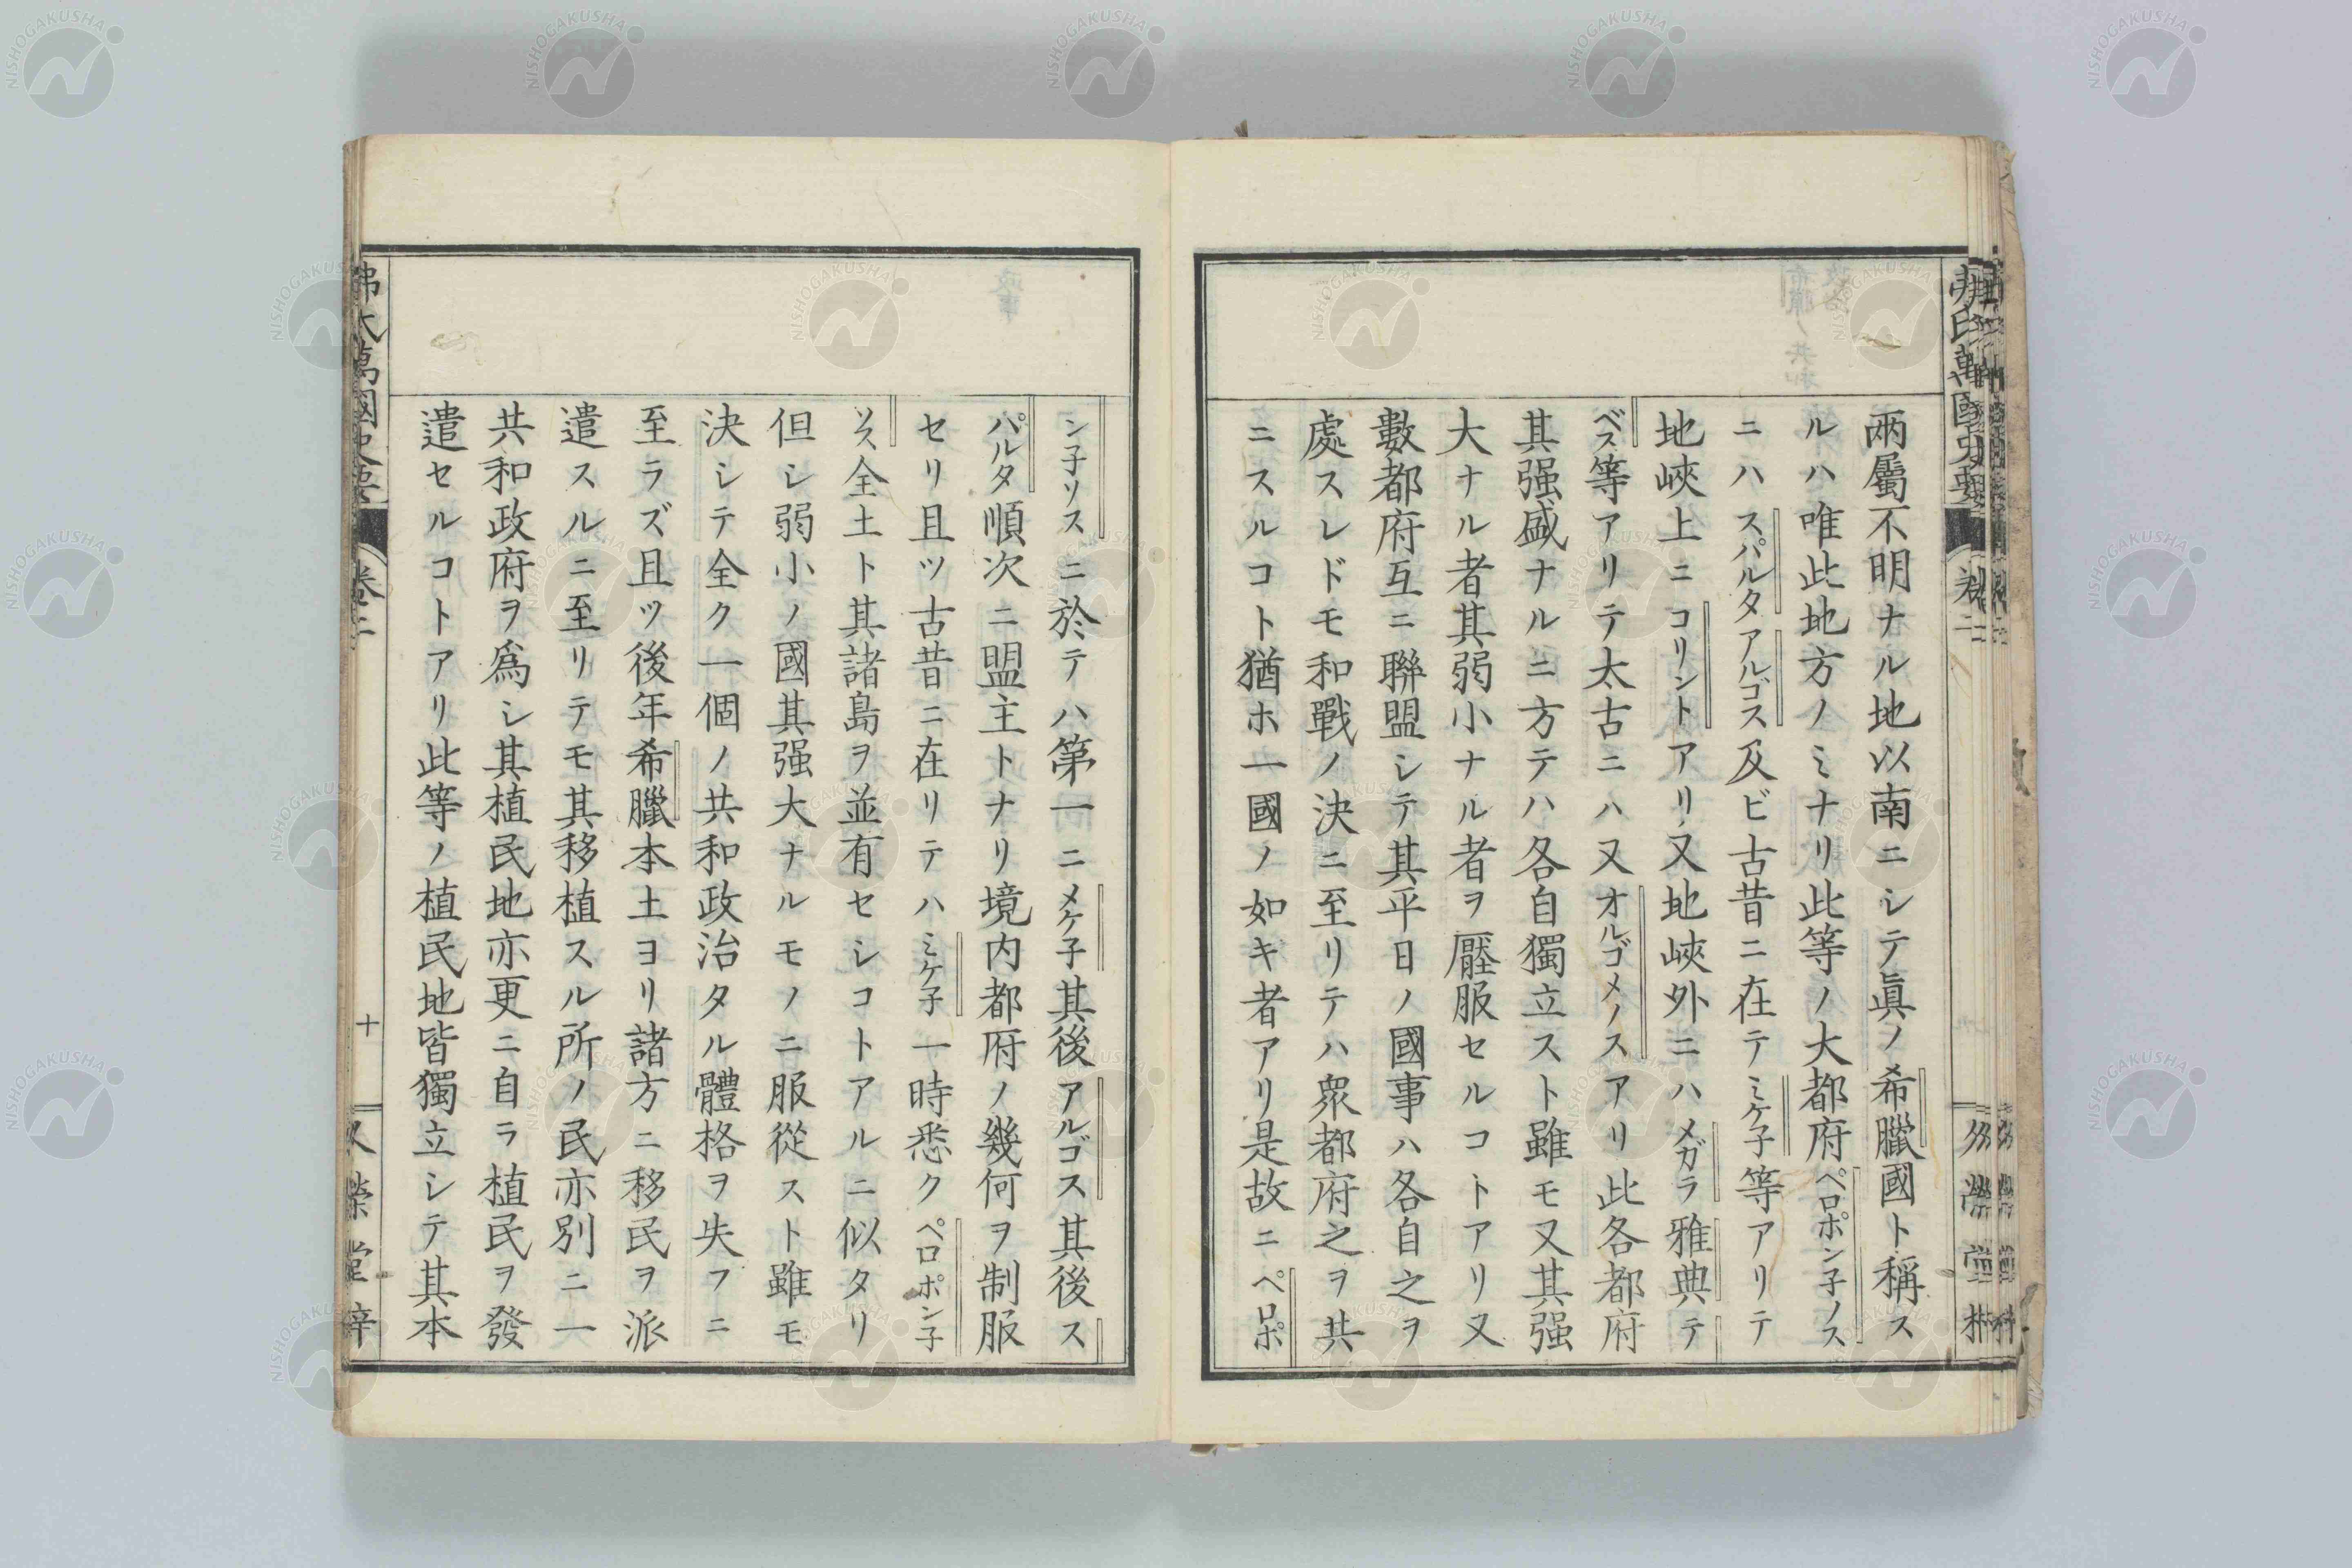 兩屬不明ナル地以南ニシテ眞ノ希臘國ト稱ス
ルハ唯此地方ノミナリ此等ノ大都府ペロポン子ノス
ニハスパルタアルゴス及ビ古昔ニ在テミケ子等アリテ
地峽上ニコリントアリ又地峽外ニハメガラ雅典テ
ベス等アリテ太古ニハ又オルゴメノスアリ此各都府
其强盛ナルニ方テハ各自獨立スト雖モ又其强
大ナル者其弱小ナル者ヲ壓服セルコトアリ又
數都府互ニ聯盟シテ其平日ノ國事ハ各自之ヲ
處スレドモ和戰ノ決ニ至リテハ衆都府之ヲ共
ニスルコト猶ホ一國ノ如キ者アリ是故ニペロポ
ン子ソスニ於テハ第一ニメケ子其後アルゴス其後ス
パルタ順次ニ盟主トナリ境内都府ノ幾何ヲ制服
セリ且ツ古昔ニ在リテハミケ子一時悉クペロポン子
ソス全土ト其諸島ヲ並有セシコトアルニ似タリ
但シ弱小ノ國其强大ナルモノニ服從スト雖モ
決シテ全ク一個ノ共和政治タル體格ヲ失フニ
至ラズ且ツ後年希臘本土ヨリ諸方ニ移民ヲ派
遣スルニ至リテモ其移植スル所ノ民亦別ニ一
共和政府ヲ爲シ其植民地亦更ニ自ラ植民ヲ發
遣セルコトアリ此等ノ植民地皆獨立シテ其本
萬國史要
卷二
十
榮堂梓
NISHOGAKUSHA